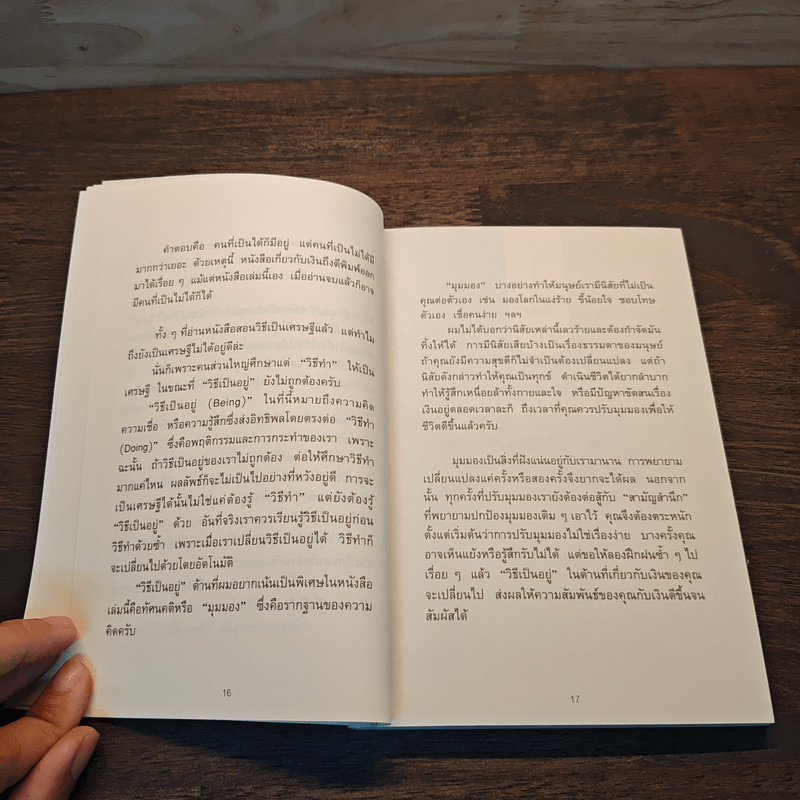 คำตอบคือ คนที่เป็นได้ก็มีอยู่ แต่คนที่เป็นไม่ได้มี
มากกว่าเยอะ ด้วยเหตุนี้ หนังสือเกี่ยวกับเงินถึงตีพิมพ์ออก
มาได้เรื่อย ๆ แม้แต่หนังสือเล่มนี้เอง เมื่ออ่านจบแล้วก็อาจ
มีคนที่เป็นไม่ได้ก็ได้
ทั้ง ๆ ที่อ่านหนังสือสอนวิธีเป็นเศรษฐีแล้ว แต่ทำไม
ถึงยังเป็นเศรษฐีไม่ได้อยู่ดีล่ะ
นั่นก็เพราะคนส่วนใหญ่ศึกษาแต่ “วิธีทำ” ให้เป็น
เศรษฐี ในขณะที่ “วิธีเป็นอยู่” ยังไม่ถูกต้องครับ
“วิธีเป็นอยู่ (Being)” ในที่นี้หมายถึงความคิด
ความเชื่อ หรือความรู้สึกซึ่งส่งอิทธิพลโดยตรงต่อ “วิธีทำ
(Doing)” ซึ่งคือพฤติกรรมและการกระทำของเรา เพราะ
ฉะนั้น ถ้าวิธีเป็นอยู่ของเราไม่ถูกต้อง ต่อให้ศึกษาวิธีทำ
มากแค่ไหน ผลลัพธ์ก็จะไม่เป็นไปอย่างที่หวังอยู่ดี การจะ
เป็นเศรษฐีได้นั้นไม่ใช่แค่ต้องรู้ “วิธีทำ” แต่ยังต้องรู้
“วิธีเป็นอยู่” ด้วย อันที่จริงเราควรเรียนรู้วิธีเป็นอยู่ก่อน
วิธีทำด้วยซ้ำ เพราะเมื่อเราเปลี่ยนวิธีเป็นอยู่ได้ วิธีทำก็
จะเปลี่ยนไปด้วยโดยอัตโนมัติ
“วิธีเป็นอยู่” ด้านที่ผมอยากเน้นเป็นพิเศษในหนังสือ
เล่มนี้คือทัศนคติหรือ “มุมมอง” ซึ่งคือรากฐานของความ
คิดครับ
16
“มุมมอง” บางอย่างทำให้มนุษย์เรามีนิสัยที่ไม่เป็น
คุณต่อตัวเอง เช่น มองโลกในแง่ร้าย ขี้น้อยใจ ชอบโทษ
ตัวเอง เชื่อคนง่าย ฯลฯ
ผมไม่ได้บอกว่านิสัยเหล่านี้เลวร้ายและต้องกำจัดมัน
ทิ้งให้ได้ การมีนิสัยเสียบ้างเป็นเรื่องธรรมดาของมนุษย์
ถ้าคุณยังมีความสุขดีก็ไม่จำเป็นต้องเปลี่ยนแปลง แต่ถ้า
นิสัยดังกล่าวทำให้คุณเป็นทุกข์ ดำเนินชีวิตได้ยากลำบาก
ทำให้รู้สึกเหนื่อยล้าทั้งกายและใจ หรือมีปัญหาขัดสนเรื่อง
เงินอยู่ตลอดเวลาละก็ ถึงเวลาที่คุณควรปรับมุมมองเพื่อให้
ชีวิตดีขึ้นแล้วครับ
มุมมองเป็นสิ่งที่ฝังแน่นอยู่กับเรามานาน การพยายาม
เปลี่ยนแปลงแค่ครั้งหรือสองครั้งจึงยากจะได้ผล นอกจาก
นั้น ทุกครั้งที่ปรับมุมมองเรายังต้องต่อสู้กับ “สามัญสำนึก”
ที่พยายามปกป้องมุมมองเดิม ๆ เอาไว้ คุณจึงต้องตระหนัก
ตั้งแต่เริ่มต้นว่าการปรับมุมมองไม่ใช่เรื่องง่าย บางครั้งคุณ
อาจเห็นแย้งหรือรู้สึกรับไม่ได้ แต่ขอให้ลองฝึกฝนซ้ำ ๆ ไป
เรื่อย ๆ แล้ว “วิธีเป็นอยู่” ในด้านที่เกี่ยวกับเงินของคุณ
จะเปลี่ยนไป ส่งผลให้ความสัมพันธ์ของคุณกับเงินดีขึ้นจน
สัมผัสได้
17